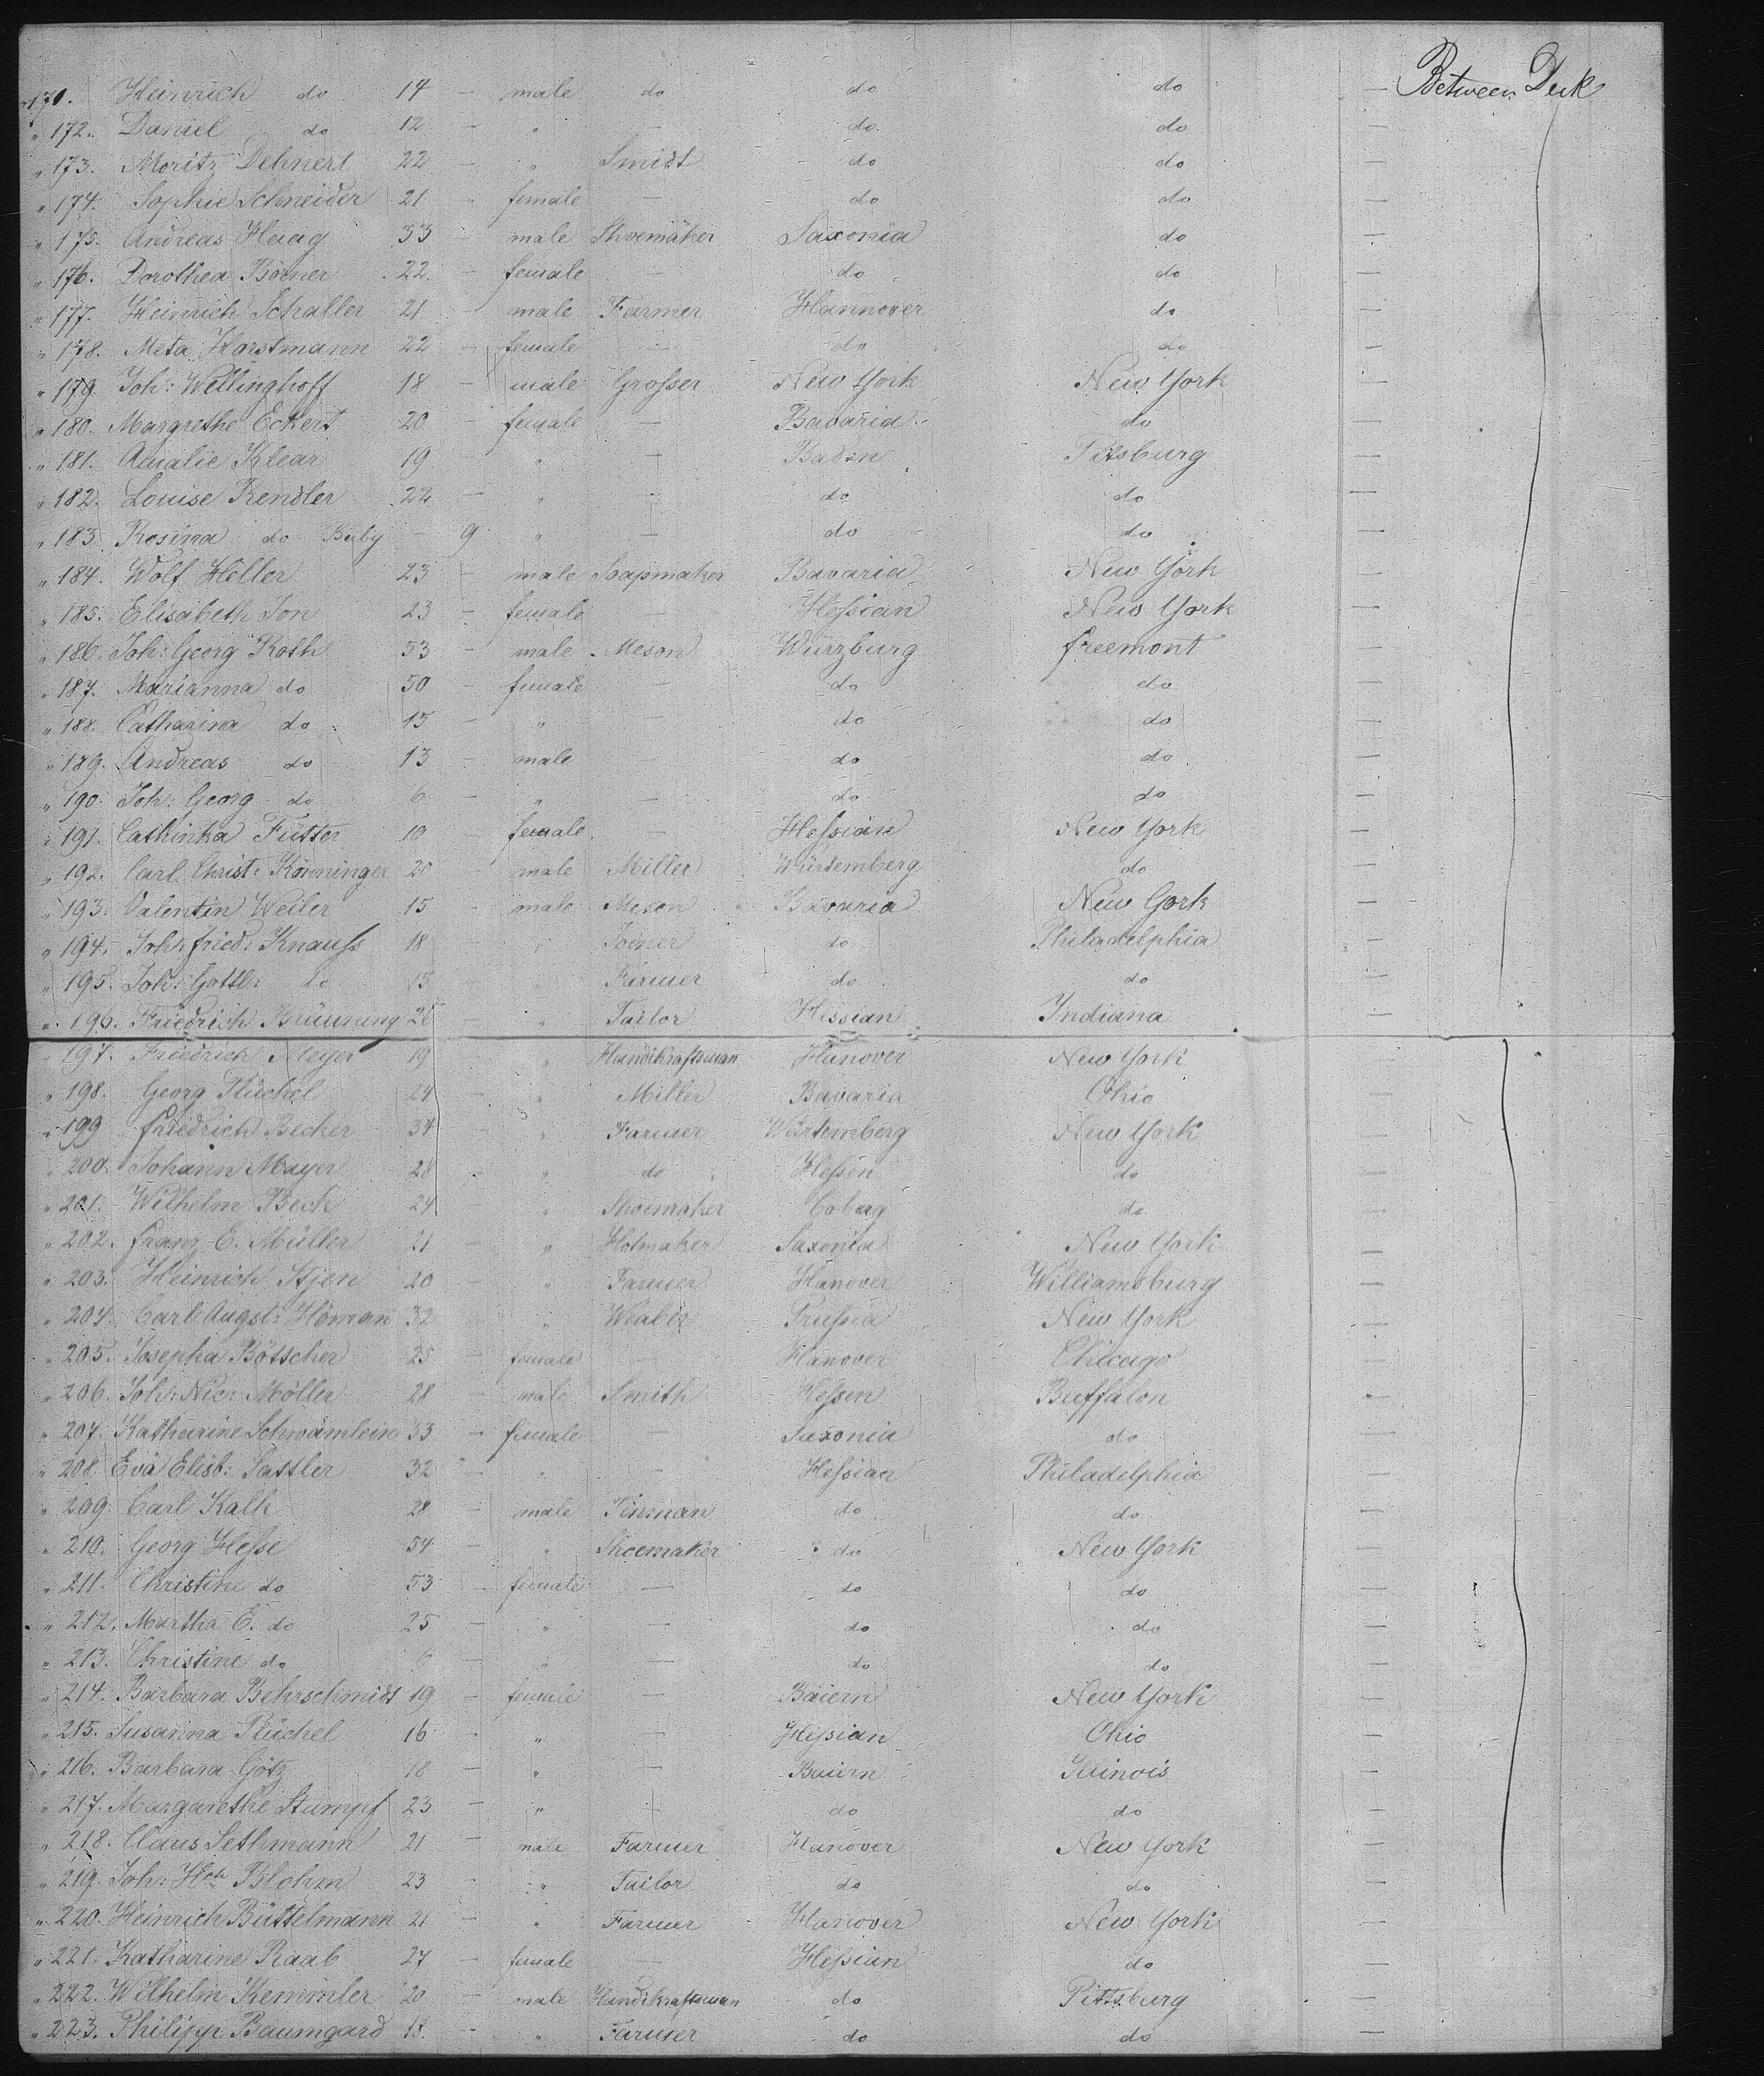 171. Heinrich do 14 — male do do do — Between Deck
" 172. Daniel do 12 — " — do do —
" 173. Moritz Dehnert 22 — " Smidt do do —
" 174. Sophie Schneider 21 " female — do do —
" 175. Andreas Haag 33 — male Shoemaker Saxonia do —
" 176. Dorothea Börner 22 — female — do do —
" 177. Heinrich Schaller 21 — male Farmer Hannover do —
" 178. Meta Horstmann 22 — female — do do —
" 179. Joh: Wellinghoff 18 — male Groſser New York New York —
" 180. Margrethe Eckert 20 — female — Bavaria do —
" 181. Amalie Klear 19 — " — Baden Pitsburg —
" 182. Louise Rendler 22 — " — do do —
" 183. Rosina do Baby — 9 " — do do —
" 184. Wolf Heller 23 — male Soapmaker Bavaria New York —
" 185. Elisabeth Jon 23 — female — Heſsian New York —
" 186. Joh: Georg Roth 53 — male Meson Würzburg freemont —
" 187. Marianna do 50 — female — do do —
" 188. Catharina do 15 — " — do do —
" 189. Andreas do 13 — male — do do —
" 190. Joh: Georg do 6 — " — do do —
" 191. Cathinka Fütter 10 — female — Heſsian New York —
" 192. Carl Christ: Könninger 20 — male Miller Würtemberg do —
" 193. Valentin Weiler 15 — male Meson Bavaria New York —
" 194. Joh: fried: Knauſs 18 " Joiner do Philadelphia —
" 195. Joh: Gottl: do 15 " Farmer do do —
" 196. Friedrich Bräunung " Tailor Hessian Indiana —
" 197. Friedrich Meyer 19 " Handikraftsman Hanover New York —
" 198. Georg Plüchel 24 — " Miller Bavaria Ohio —
" 199 friedrich Becher 34 — " Farmer Würtemberg New York —
" 200. Johann Mayer 28 — " do Heſsen do —
" 201. Wilhelm Beck 24 — " Shoemaker Coburg do —
" 202. franz E. Müller 21 — " Hotmaker Saxonia New York —
" 203. Heinrich Stjen 20 — " Farmer Hanover Williamsburg —
" 204. Carl Augst: Höman 32 " Weaber Pruſsia New York —
" 205. Josepha Bötscher 25 — female — Hanover Chicago —
" 206. Joh: Nic: Möller 28 — male Smith Heſsen Buffalon —
" 207. Katharine Schwämlein 33 — female — Saxonia do —
" 208. Eva Elisb: Sattler 32 — " — Heſsian Philadelphia —
" 209. Carl Kalk 28 — male Tinman do do —
" 210. Georg Heſse 54 — " Shoemaker do New York —
" 211. Christine do 53 — female — do do —
" 212. Martha E. do 25 — " — do do —
" 213. Christine do 6 — " — do do —
" 214. Barbara Behrschmidt 19 — female — Baiern New York —
" 215. Susanna Plüchel 16 — " — Heſsian Ohio —
" 216. Barbara Götz 18 — " — Baiern Illinois —
" 217. Margarethe Stumpf 23 — " — do do —
" 218. Claus Sethmann 21 — male Farmer Hanover New York —
" 219. Joh: Hch Blohm 23 — " Tailor do do —
" 220. Heinrich Büttelmann 21 — " Farmer Hanover New York —
" 221. Katharine Raab 27 — female — Heſsian do —
" 222. Wilhelm Kemmler 20 — male Handikraftsman do Pittsburg —
" 223. Philipp Baumgard 18 — " Farmer do do —